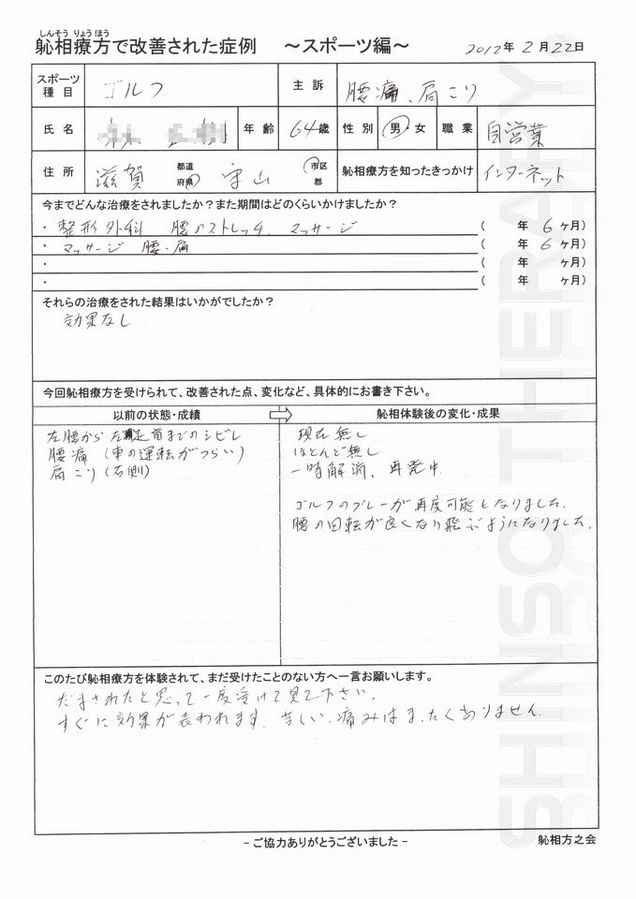 しんそう りょうほう
恥相療方で改善された症例 ～スポーツ編～ 2012年 2月 22日
スポーツ種目 ゴルフ 主訴 腰痛、肩こり
氏名 年齢 64歳 性別 男・女 職業 自営業
住所 滋賀 都道府県 守山 市区郡 恥相療方を知ったきっかけ インターネット
今までどんな治療をされましたか？また期間はどのくらいかけましたか？
・ 整形外科 腰のストレッチ マッサージ ( 年 6 ヶ月)
・ マッサージ 腰・肩 ( 年 6 ヶ月)
・ ( 年 ヶ月)
・ ( 年 ヶ月)
それらの治療をされた結果はいかがでしたか？
効果なし
今回恥相療方を受けられて、改善された点、変化など、具体的にお書き下さい。
以前の状態・成績 恥相体験後の変化・成果
左腰から左足首までのシビレ 現在無し
腰痛（車の運転がつらい） ほとんど無し
肩こり（右側） 一時解消、再発中
ゴルフのプレーが再度可能となりました。
腰の回転が良くなり飛ぶようになりました。
このたび恥相療方を体験されて、まだ受けたことのない方へ一言お願いします。
だまされたと思って一度受けて見て下さい。
すぐに効果が表われます。苦しい痛みはまったくありません。
- ご協力ありがとうございました -
恥相方之会
SHINSO THERAPY